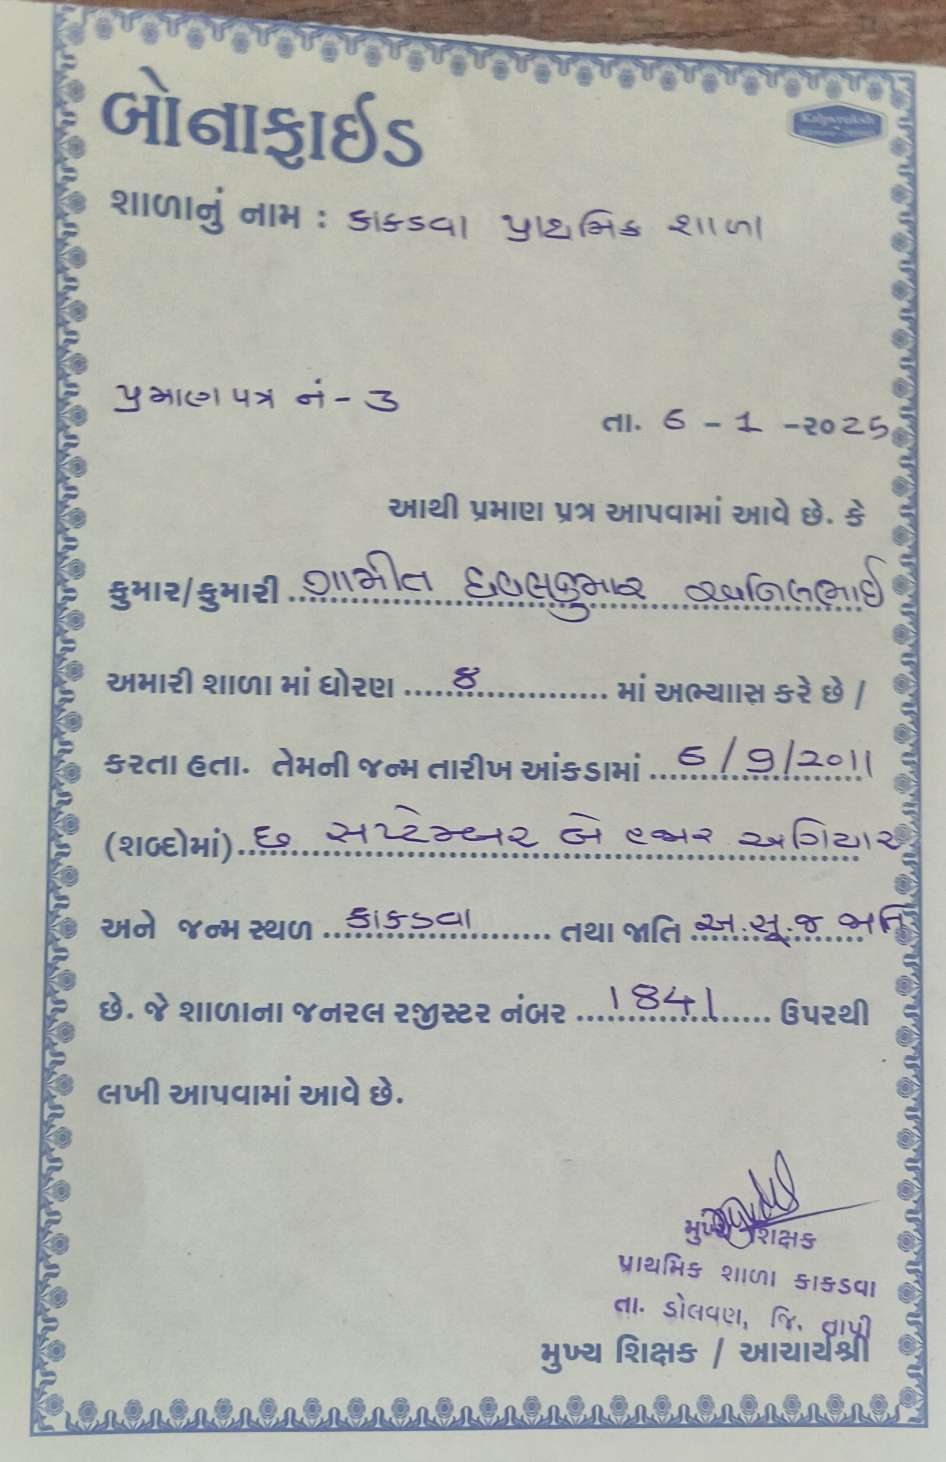 બોનાફાઈડ
Kalpvruksh
શાળાનું નામ : કાકડવા પ્રાથમિક શાળા
પ્રમાણ પત્ર નં - 3
તા. 6 - 1 - ૨૦25
આથી પ્રમાણ પત્ર આપવામાં આવે છે. કે
કુમાર/કુમારી ગામીત ધવલકુમાર અનિલભાઈ
અમારી શાળા માં ધોરણ ૪ માં અભ્યાસ કરે છે /
કરતા હતા. તેમની જન્મ તારીખ આંકડામાં 6/9/2011
(શબ્દોમાં) છ સપ્ટેમ્બર બે હજાર અગિયાર
અને જન્મ સ્થળ કાકડવા તથા જાતિ અ.સૂ.જ જાતિ
છે. જે શાળાના જનરલ રજીસ્ટર નંબર 1841 ઉપરથી
લખી આપવામાં આવે છે.
મુખ્ય શિક્ષક
પ્રાથમિક શાળા કાકડવા
તા. ડોલવણ, જિ. તાપી
મુખ્ય શિક્ષક / આચાર્યશ્રી